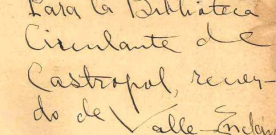 Para la Biblioteca
Circulante de
Castropol, recuer-
do de Valle-Inclán